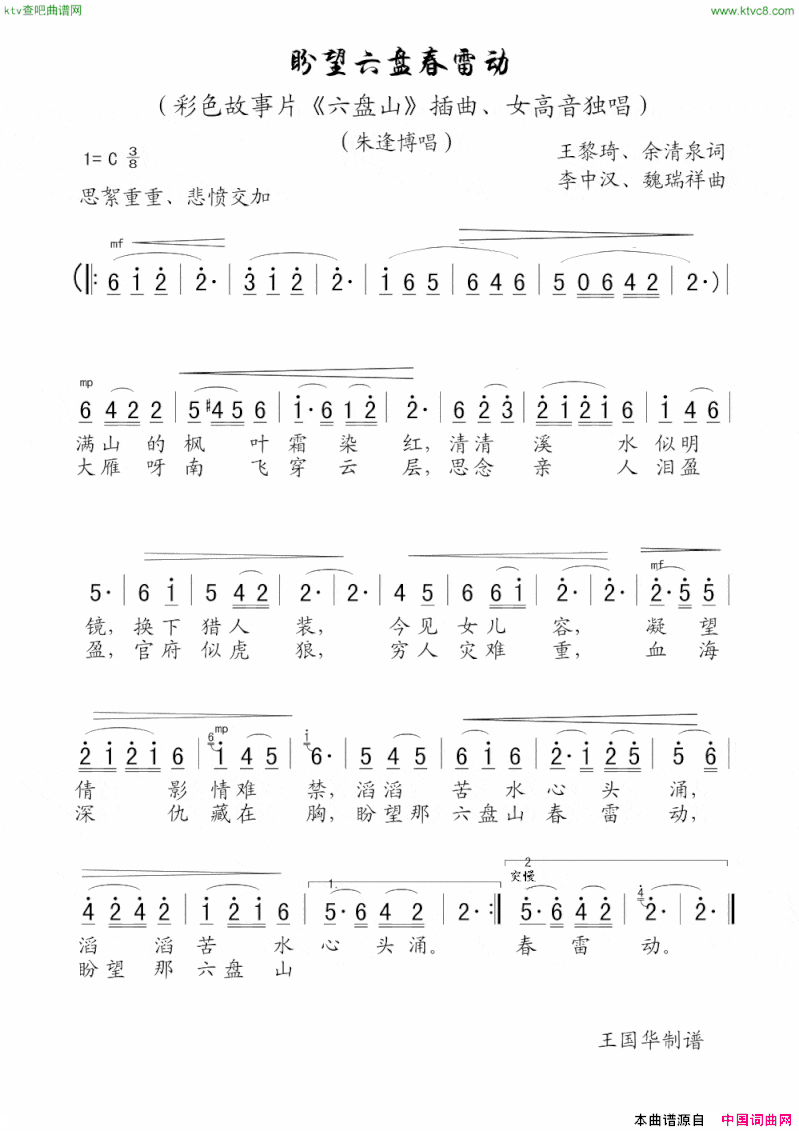 ktv查吧曲谱网
www.ktvc8.com
盼望六盘春雷动
（彩色故事片《六盘山》插曲、女高音独唱）
（朱逢博唱）
1= C 3/8
王黎琦、余清泉词
思絮重重、悲愤交加
李中汉、魏瑞祥曲
mf
(‖: 6 1̇ 2̇ | 2̇· | 3̇ 1̇ 2̇ | 2̇· | 1̇ 6 5 | 6 4 6 | 5 0 6 4 2 | 2·) |
mp
6 4 2 2 | 5 #4 5 6 | 1̇· 6 1 2̇ | 2̇· | 6 2̇ 3̇ | 2̇ 1̇ 2̇ 1̇ 6 | 1̇ 4 6 |
满山的枫叶霜染红,清清溪水似明
大雁呀南飞穿云层,思念亲人泪盈
mf
5· | 6 1̇ | 5 4 2 | 2· | 2· | 4 5 | 6 6 1̇ | 2̇· | 2̇· | 2̇· 5̇ 5̇ |
镜,换下猎人装,今见女儿容,凝望
盈,官府似虎狼,穷人灾难重,血海
6 mp 1̇
2̇ 1̇ 2̇ 1̇ 6 | 1̇ 4 5 | 6· | 5 4 5 | 6 1̇ | 2̇· 1̇ 2̇ 5̇ | 5̇ 6̇ |
倩影情难禁,滔滔苦水心头涌,
深仇藏在胸,盼望那六盘山春雷动,
1.
2
突慢
4̇
4̇ 2̇ 4̇ 2̇ | 1̇ 2̇ 1̇ 6 | 5· 6 4 2 | 2· :‖ 5̇· 6̇ 4̇ 2̇ | 2̇· | 2̇· ‖
滔滔苦水心头涌。春雷动。
盼望那六盘山
王国华制谱
本曲谱源自 中国词曲网